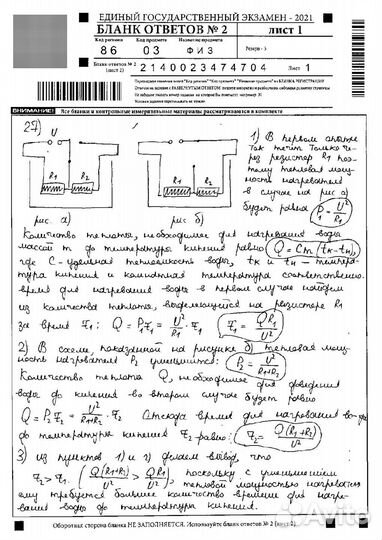 ЕДИНЫЙ ГОСУДАРСТВЕННЫЙ ЭКЗАМЕН - 2021
БЛАНК ОТВЕТОВ № 2
лист 1
Код региона
Код предмета
Название предмета
86
03
ФИЗ
Резерв - 5
Бланк ответов № 2 (лист 2)
2140023474704
Лист 1
ВНИМАНИЕ!
Все бланки и контрольные измерительные материалы рассматриваются в комплекте
27)
U
R1
R2
рис. а)
R1
R2
рис. б)
1) В первом случае
ток течёт только че-
рез резистор R1 поэ-
тому тепловая мощ-
ность нагревателя
в случае на рис а)
будет равна P1 = U²/R1
Количество теплоты, необходимое для нагревания воды
массой m до температуры кипения равно Q = Cm(tк-tн),
где С - удельная теплоёмкость воды, tк и tн - темпера-
тура кипения и комнатная температура соответственно.
Время для нагревания воды в первом случае найдём
из количества теплоты, выделяющейся на резисторе R1
за время τ1: Q = P1τ1 = U²/R1 · τ1 τ1 = QR1/U²
2) В схеме, показанной на рисунке б) тепловая мощ-
ность нагревателя P2 уменьшится: P2 = U²/R1+R2
Количество теплоты Q, необходимое для доведения
воды до кипения во втором случае будет равно
Q = P2τ2 = U²/R1+R2 · τ2 Отсюда время для нагревания воды
до температуры кипения τ2 равно: τ2 = Q(R1+R2)/U²
3) из пунктов 1) и 2) делаем вывод, что
τ2 > τ1. (Q(R1+R2)/U² > QR1/U²), поскольку с уменьшением
тепловой мощности нагревателя
ему требуется большее количество времени для нагре-
вания воды до температуры кипения.
Оборотная сторона бланка НЕ ЗАПОЛНЯЕТСЯ. Используйте бланк ответов № 2 (лист 2).
Avito